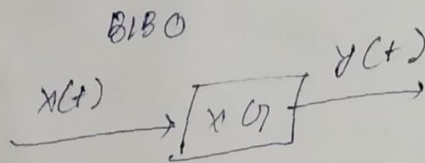 BIBO
x(t)
y(t)